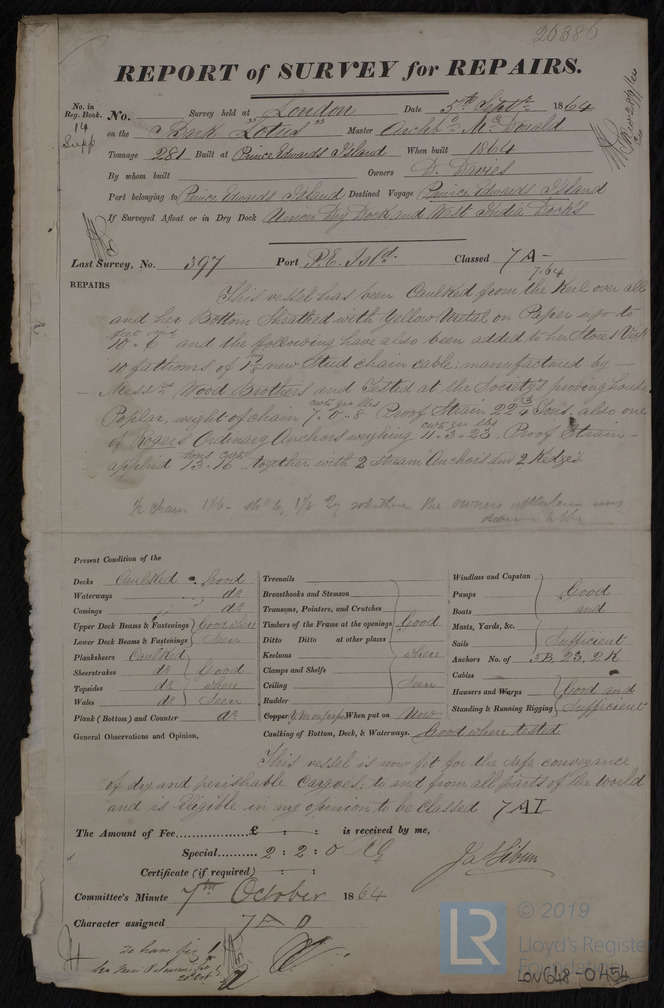 26386
REPORT of SURVEY for REPAIRS.
No. in Reg. Book. No. Survey held at London Date 5th Septr 1864
14 Supp on the Bark "Lotus" Master Archbd McDonald
Tonnage 281 Built at Prince Edwards Island When built 1864
By whom built Owners D. Davies
Port belonging to Prince Edwards Island Destined Voyage Prince Edwards Island
If Surveyed Afloat or in Dry Dock Union Dry Dock and West India Docks
Last Survey, No. 397 Port P.E. Isld. Classed 7 A -
7.64
REPAIRS
This vessel has been Caulked from the Keel over all
and her Bottom Sheathed with Yellow Metal on Paper up to
10 . 6 and the following have also been added to her Stores
10 fathoms of new Stud chain cable manufactured by
Messrs Wood Brothers and Tested at the Society's proving house
cwts qrs lbs
Poplar, weight of chain 7 . 0 . 8 Proof Strain 22 Tons. also one
cwts qrs lbs
of Rogers Ordinary Anchors weighing 11 . 3 . 23 Proof Strain
tons cwts
applied 13 . 16 together with 2 Stream Anchors and 2 Kedges.
chain the owners
Present Condition of the
Decks Caulked . Good
Waterways do
Comings do
Upper Deck Beams & Fastenings Good where
Lower Deck Beams & Fastenings Seen
Planksheers Caulked
Sheerstrakes do Good
Topsides do where
Wales do Seen
Plank (Bottom) and Counter do
General Observations and Opinion,
Treenails
Breasthooks and Stemson
Transoms, Pointers, and Crutches
Timbers of the Frame at the openings Good
Ditto Ditto at other places
Keelsons where
Clamps and Shelfs
Ceiling Seen
Rudder
Copper Y.M on paper When put on Now
Caulking of Bottom, Deck, & Waterways. Good where tested
Windlass and Capstan
Pumps Good
Boats and
Masts, Yards, &c.
Sails Sufficient
Anchors No. of 3B, 2S, 2K
Cables
Hausers and Warps Good and
Standing & Running Rigging Sufficient
This vessel is now fit for the safe conveyance
of dry and perishable Cargoes, to and from all parts of the World
and is eligible in my opinion to be Classed 7 A I
The Amount of Fee............... £ : : is received by me,
Special.......... 2 : 2 : 0
Certificate (if required) : :
Committee's Minute 7th October 1864
Character assigned 7 A
© 2019
LR Lloyd's Register
Foundation
LON648-0454